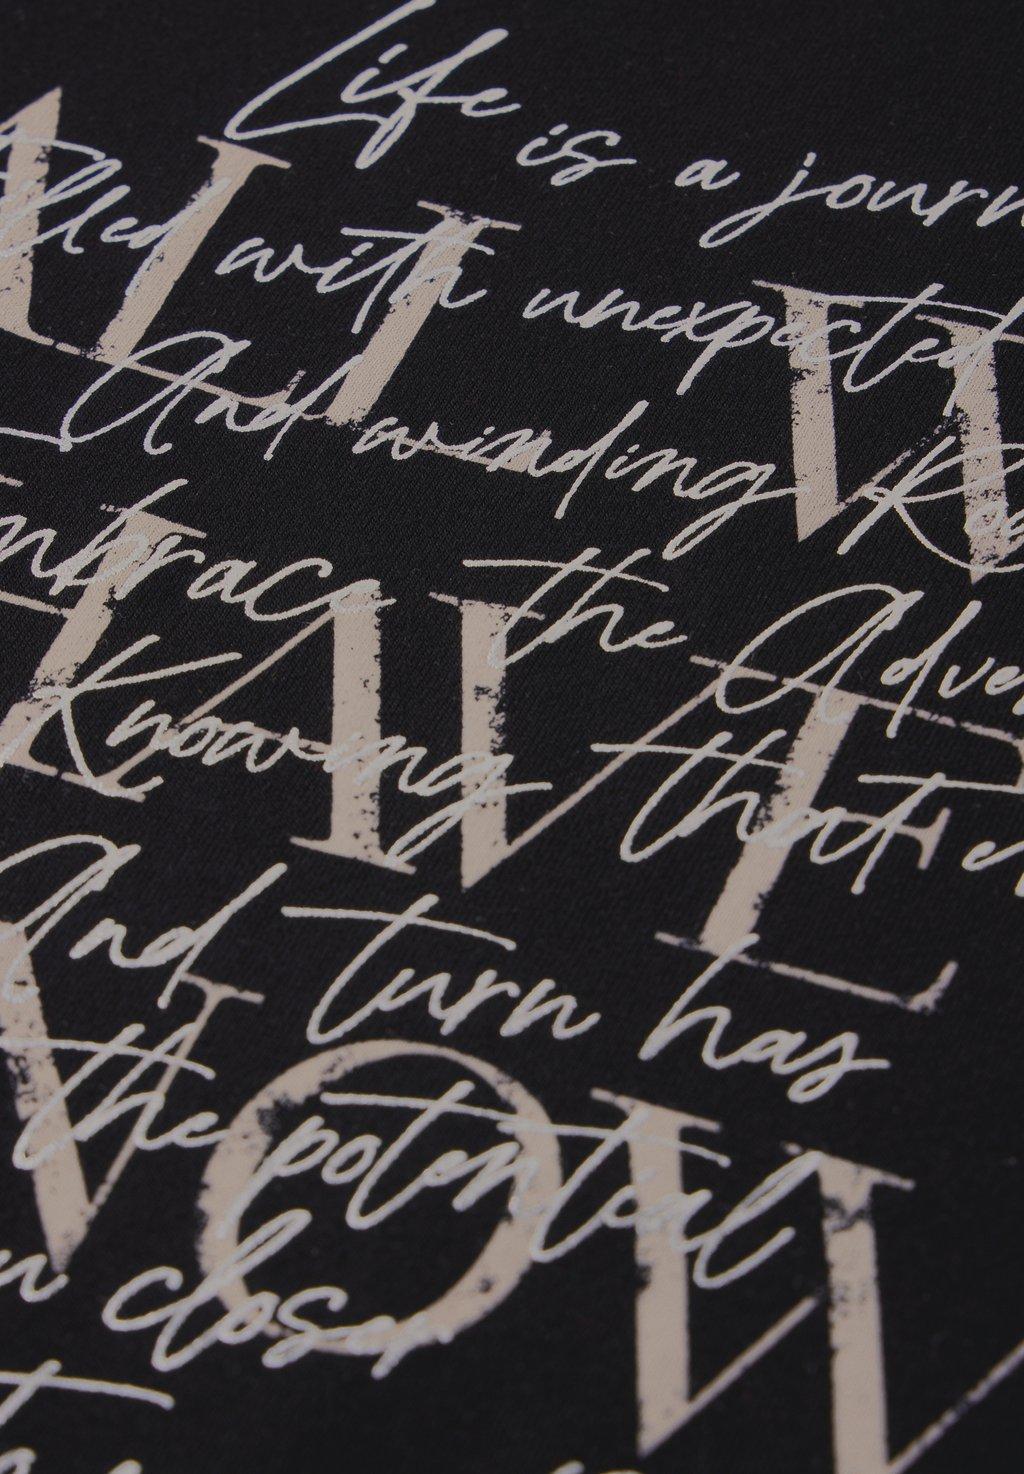 Life is a journ
ALL W
lled with unexpected
And winding Roa
mbrace the Adven
HAVE
Knowing that e
And turn has
NOW
the potential
u closer